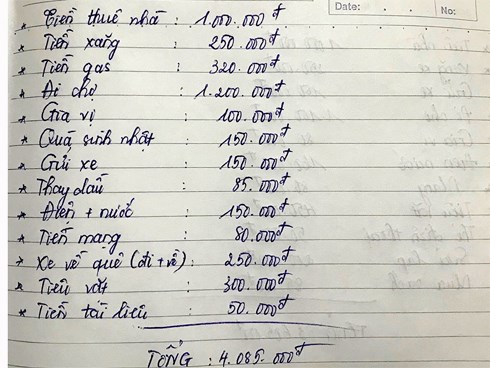 Date:
No:
* Tiền thuê nhà : 1.000.000đ
* Tiền xăng : 250.000đ
* Tiền gas : 320.000đ
* Đi chợ : 1.200.000đ
* Gia vị : 100.000đ
* Quà sinh nhật : 150.000đ
* Gửi xe : 150.000đ
* Thay dầu : 85.000đ
* Điện + nước : 150.000đ
* Tiền mạng : 80.000đ
* Xe về quê (đi + về) : 250.000đ
* Tiêu vặt : 300.000đ
* Tiền tài liệu : 50.000đ
TỔNG : 4.085.000đ